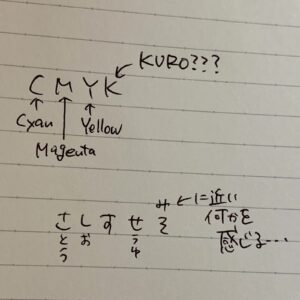 KURO???
CMYK
Cyan
Yellow
Magenta
さしすせそ
みに近い
何かを
感じる…
さとう
しお
せうゆ